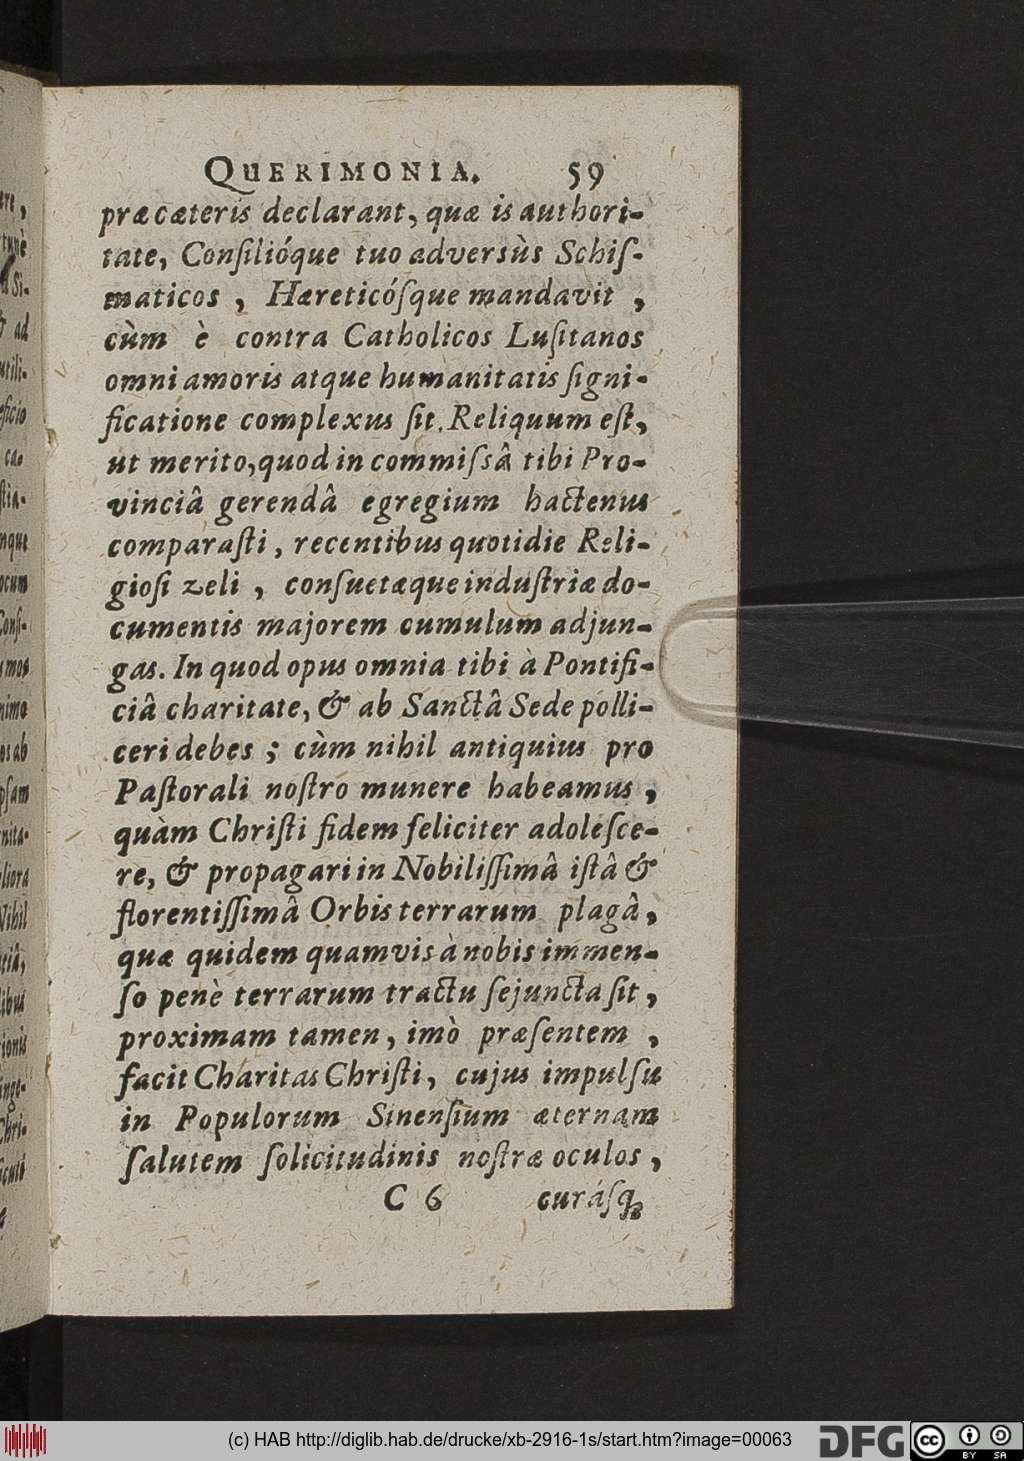 QUERIMONIA. 59
præcæteris declarant, quæ is authori-
tate, Conſilióque tuo adversùs Schiſ-
maticos, Hæreticóſque mandavit,
cùm è contra Catholicos Luſitanos
omni amoris atque humanitatis ſigni-
ficatione complexus ſit. Reliquum eſt,
ut merito, quod in commiſsâ tibi Pro-
vinciâ gerendâ egregium hactenus
comparaſti, recentibus quotidie Reli-
gioſi zeli, conſuetæque induſtriæ do-
cumentis majorem cumulum adjun-
gas. In quod opus omnia tibi à Pontifi-
ciâ charitate, & ab Sanctâ Sede polli-
ceri debes; cùm nihil antiquius pro
Paſtorali noſtro munere habeamus,
quàm Chriſti fidem feliciter adoleſce-
re, & propagari in Nobiliſſimâ iſtâ &
florentiſſimâ Orbis terrarum plagâ,
quæ quidem quamvis à nobis immen-
ſo penè terrarum tractu ſejuncta ſit,
proximam tamen, imò præſentem,
facit Charitas Chriſti, cujus impulſu
in Populorum Sinenſium æternam
ſalutem ſolicitudinis noſtræ oculos,
C 6 curáſq;
(c) HAB http://diglib.hab.de/drucke/xb-2916-1s/start.htm?image=00063
DFG
cc BY SA